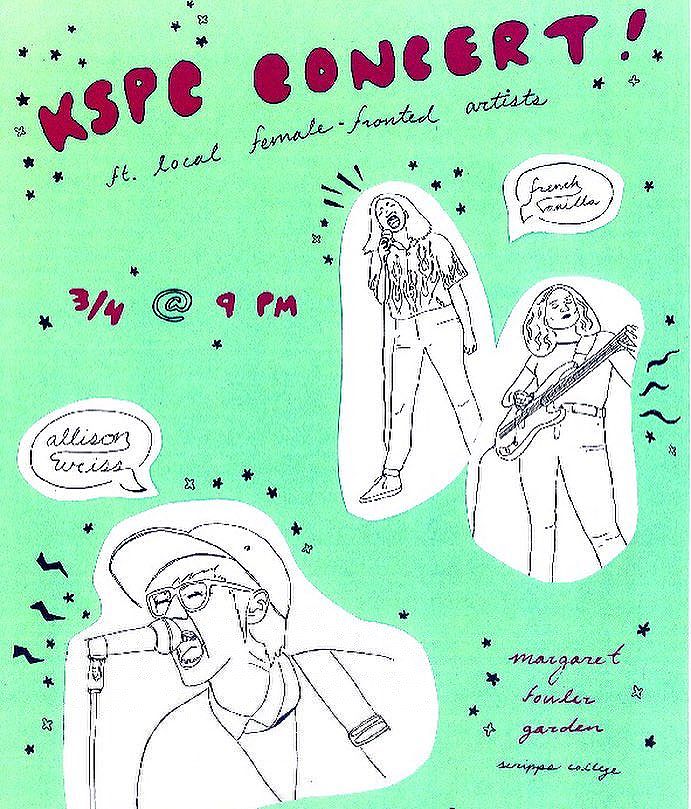 KSPC CONCERT!
ft. local female-fronted artists
french
vanilla
3/4 @ 9 PM
allison
weiss
margaret
fowler
garden
scripps college